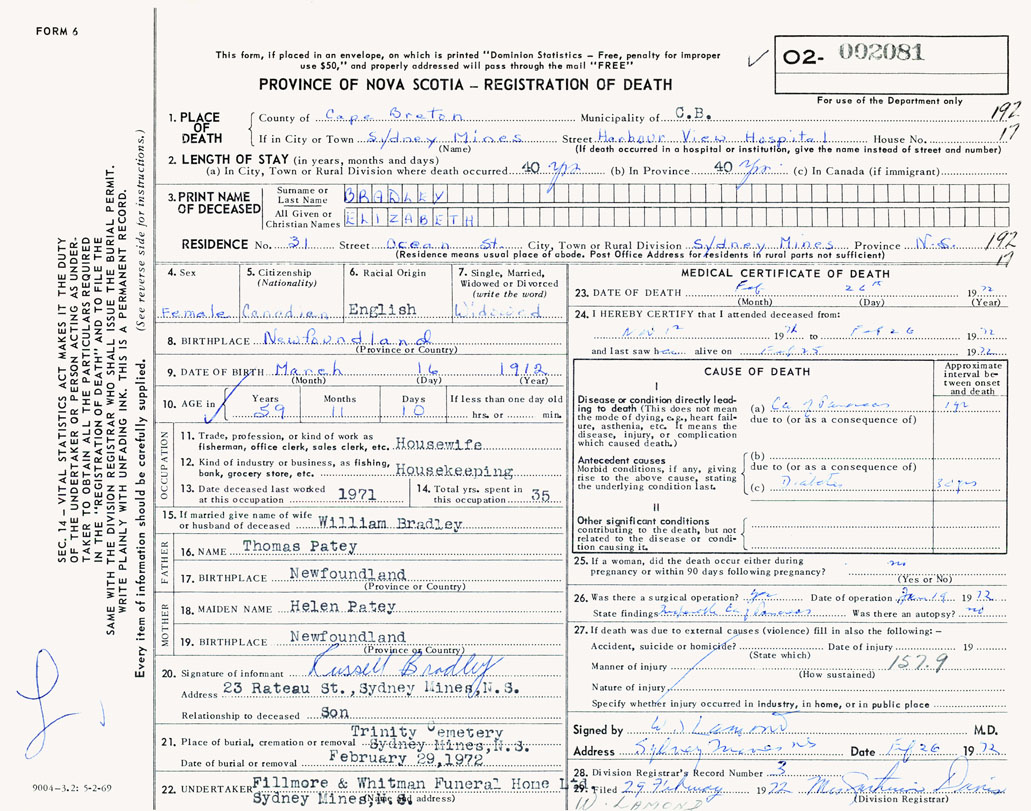 FORM 6
This form, if placed in an envelope, on which is printed "Dominion Statistics – Free, penalty for improper
use $50," and properly addressed will pass through the mail "FREE"
PROVINCE OF NOVA SCOTIA – REGISTRATION OF DEATH
O2- 002081
For use of the Department only
1. PLACE OF DEATH
County of Cape Breton Municipality of C.B. 192
If in City or Town Sydney Mines Street Harbour View Hospital House No. 17
(Name) (If death occurred in a hospital or institution, give the name instead of street and number)
2. LENGTH OF STAY (in years, months and days)
(a) In City, Town or Rural Division where death occurred 40 yrs (b) In Province 40 yrs (c) In Canada (if immigrant)
3. PRINT NAME OF DECEASED
Surname or Last Name BRADLEY
All Given or Christian Names ELIZABETH
RESIDENCE No. 31 Street Ocean St. City, Town or Rural Division Sydney Mines Province N.S. 192
(Residence means usual place of abode. Post Office Address for residents in rural parts not sufficient) 17
4. Sex
Female
5. Citizenship
(Nationality)
Canadian
6. Racial Origin
English
7. Single, Married,
Widowed or Divorced
(write the word)
Widowed
8. BIRTHPLACE Newfoundland
(Province or Country)
9. DATE OF BIRTH March 16 1912
(Month) (Day) (Year)
10. AGE
Years Months Days If less than one day old
59 11 10 hrs. or min.
OCCUPATION
11. Trade, profession, or kind of work as
fisherman, office clerk, sales clerk, etc. Housewife
12. Kind of industry or business, as fishing,
bank, grocery store, etc. Housekeeping
13. Date deceased last worked
at this occupation 1971
14. Total yrs. spent in
this occupation 35
15. If married give name of wife
or husband of deceased William Bradley
FATHER
16. NAME Thomas Patey
17. BIRTHPLACE Newfoundland
(Province or Country)
MOTHER
18. MAIDEN NAME Helen Patey
19. BIRTHPLACE Newfoundland
(Province or Country)
20. Signature of informant Russell Bradley
Address 23 Rateau St., Sydney Mines, N.S.
Relationship to deceased Son
Trinity Cemetery
21. Place of burial, cremation or removal Sydney Mines, N.S.
Date of burial or removal February 29, 1972
22. UNDERTAKER Fillmore & Whitman Funeral Home Ltd.
Sydney Mines, N.S.
(Name and address)
MEDICAL CERTIFICATE OF DEATH
23. DATE OF DEATH Feb 26th 1972
(Month) (Day) (Year)
24. I HEREBY CERTIFY that I attended deceased from:
to Feb 26 1972
and last saw her alive on Feb 25 1972
CAUSE OF DEATH
Approximate
interval be-
tween onset
and death
I
Disease or condition directly lead-
ing to death (This does not mean
the mode of dying, e.g., heart fail-
ure, asthenia, etc. It means the
disease, injury, or complication
which caused death.)
(a) Ca of Pancreas
due to (or as a consequence of)
Antecedent causes
Morbid conditions, if any, giving
rise to the above cause, stating
the underlying condition last.
(b)
due to (or as a consequence of)
(c) Diabetes
II
Other significant conditions
contributing to the death, but not
related to the disease or condi-
tion causing it.
25. If a woman, did the death occur either during
pregnancy or within 90 days following pregnancy? no
(Yes or No)
26. Was there a surgical operation? yes Date of operation Jan 19 1972
State findings Ca of Pancreas Was there an autopsy? no
27. If death was due to external causes (violence) fill in also the following: –
Accident, suicide or homicide? Date of injury 19
(State which)
Manner of injury 157.9
(How sustained)
Nature of injury
Specify whether injury occurred in industry, in home, or in public place
Signed by W J Lamond M.D.
Address Sydney Mines NS Date Feb 26 1972
28. Division Registrar's Record Number 3
29. Filed 29 February 1972 Davis
(Division Registrar)
W. LAMOND
SEC. 14 – VITAL STATISTICS ACT MAKES IT THE DUTY
OF THE UNDERTAKER OR PERSON ACTING AS UNDER-
TAKER TO OBTAIN ALL THE PARTICULARS REQUIRED
IN THE "REGISTRATION OF DEATH" AND TO FILE THE
SAME WITH THE DIVISION REGISTRAR WHO SHALL ISSUE THE BURIAL PERMIT.
WRITE PLAINLY WITH UNFADING INK. THIS IS A PERMANENT RECORD.
Every item of information should be carefully supplied. (See reverse side for instructions.)
9004-3.2: 5-2-69